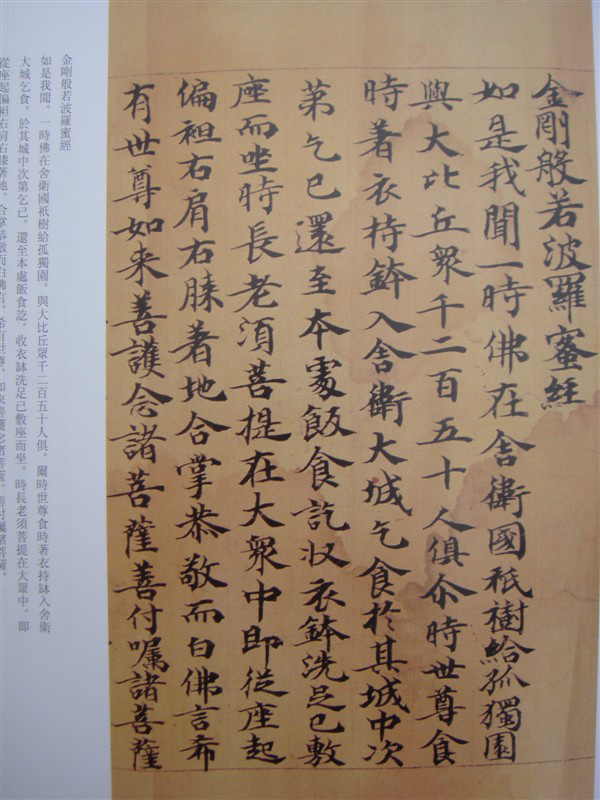 金剛般若波羅蜜經
如是我聞一時佛在舍衛國祇樹給孤獨園
與大比丘眾千二百五十人俱尒時世尊食
時著衣持鉢入舍衛大城乞食於其城中次
第乞已還至本處飯食訖收衣鉢洗足已敷
座而坐時長老須菩提在大眾中即從座起
偏袒右肩右膝著地合掌恭敬而白佛言希
有世尊如来善護念諸菩薩善付囑諸菩薩
金剛般若波羅蜜經
如是我聞。一時佛在舍衛國祇樹給孤獨園。與大比丘眾千二百五十人俱。爾時世尊食時著衣持缽入舍衛
大城乞食。於其城中次第乞已。還至本處飯食訖。收衣缽洗足已敷座而坐。時長老須菩提在大眾中。即
從座起偏袒右肩右膝著地。合掌恭敬而白佛言。希有世尊。如來善護念諸菩薩。善付囑諸菩薩。